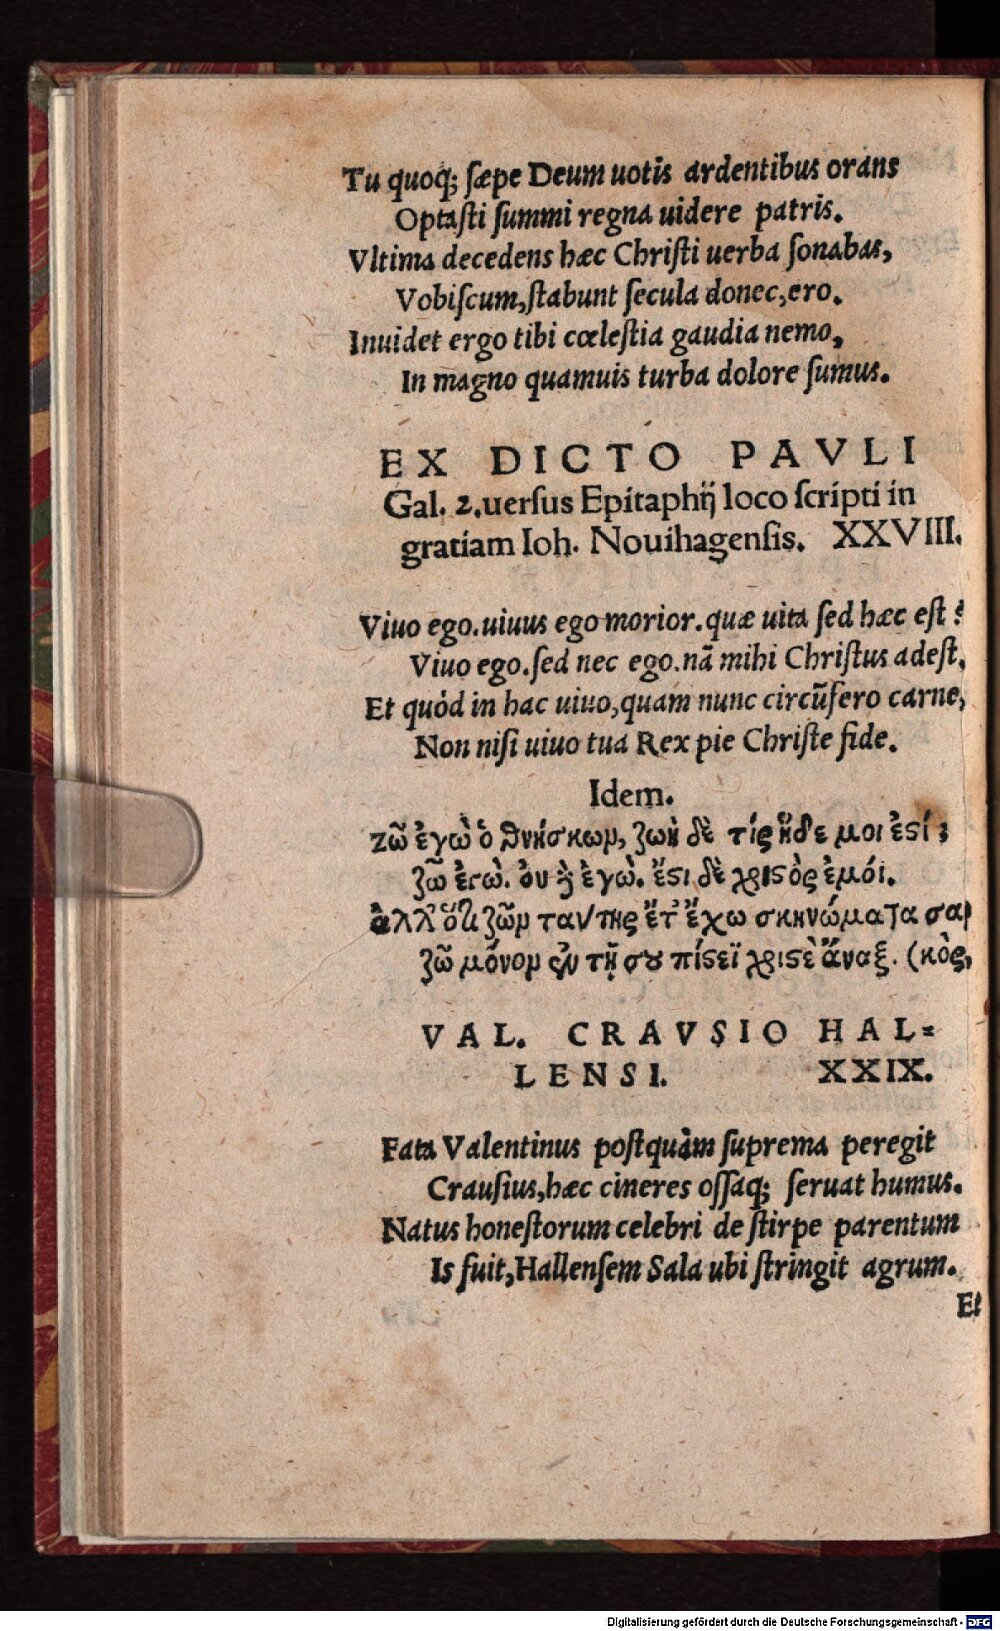 Tu quoq; ſæpe Deum uotis ardentibus orans
Optaſti ſummi regna uidere patris.
Vltima decedens hæc Chriſti uerba ſonabas,
Vobiſcum, ſtabunt ſecula donec, ero.
Inuidet ergo tibi cœleſtia gaudia nemo,
In magno quamuis turba dolore ſumus.
EX DICTO PAVLI
Gal. 2. uerſus Epitaphij loco ſcripti in
gratiam Ioh. Nouihagenſis. XXVIII.
Viuo ego. uiuus ego morior. quæ uita ſed hæc eſt?
Viuo ego. ſed nec ego. nã mihi Chriſtus adeſt,
Et quód in hac uiuo, quam nunc circũfero carne,
Non niſi uiuo tua Rex pie Chriſte fide.
Idem.
ζῶ ἐγὼ ὁ θνήσκων, ζωὴ δὲ τίς ἥδε μοι ἐϛί;
ζῶ ἐγώ. ὀυ γὰρ ἐγὼ. ἔϛι δὲ χριϛὸς ἐμόι.
ἀλλ' ὅτι ζῶν ταύτης ἔτ' ἔχω σκηνώματα σαρ
ζῶ μόνον ἐν τῇ σου πίϛεϊ χριϛὲ ἄναξ. (κὸς,
VAL. CRAVSIO HAL=
LENSI. XXIX.
Fata Valentinus poſtquàm ſuprema peregit
Crauſius, hæc cineres oſſaq; ſeruat humus.
Natus honeſtorum celebri de ſtirpe parentum
Is fuit, Hallenſem Sala ubi ſtringit agrum.
Et
Digitalisierung gefördert durch die Deutsche Forschungsgemeinschaft - DFG